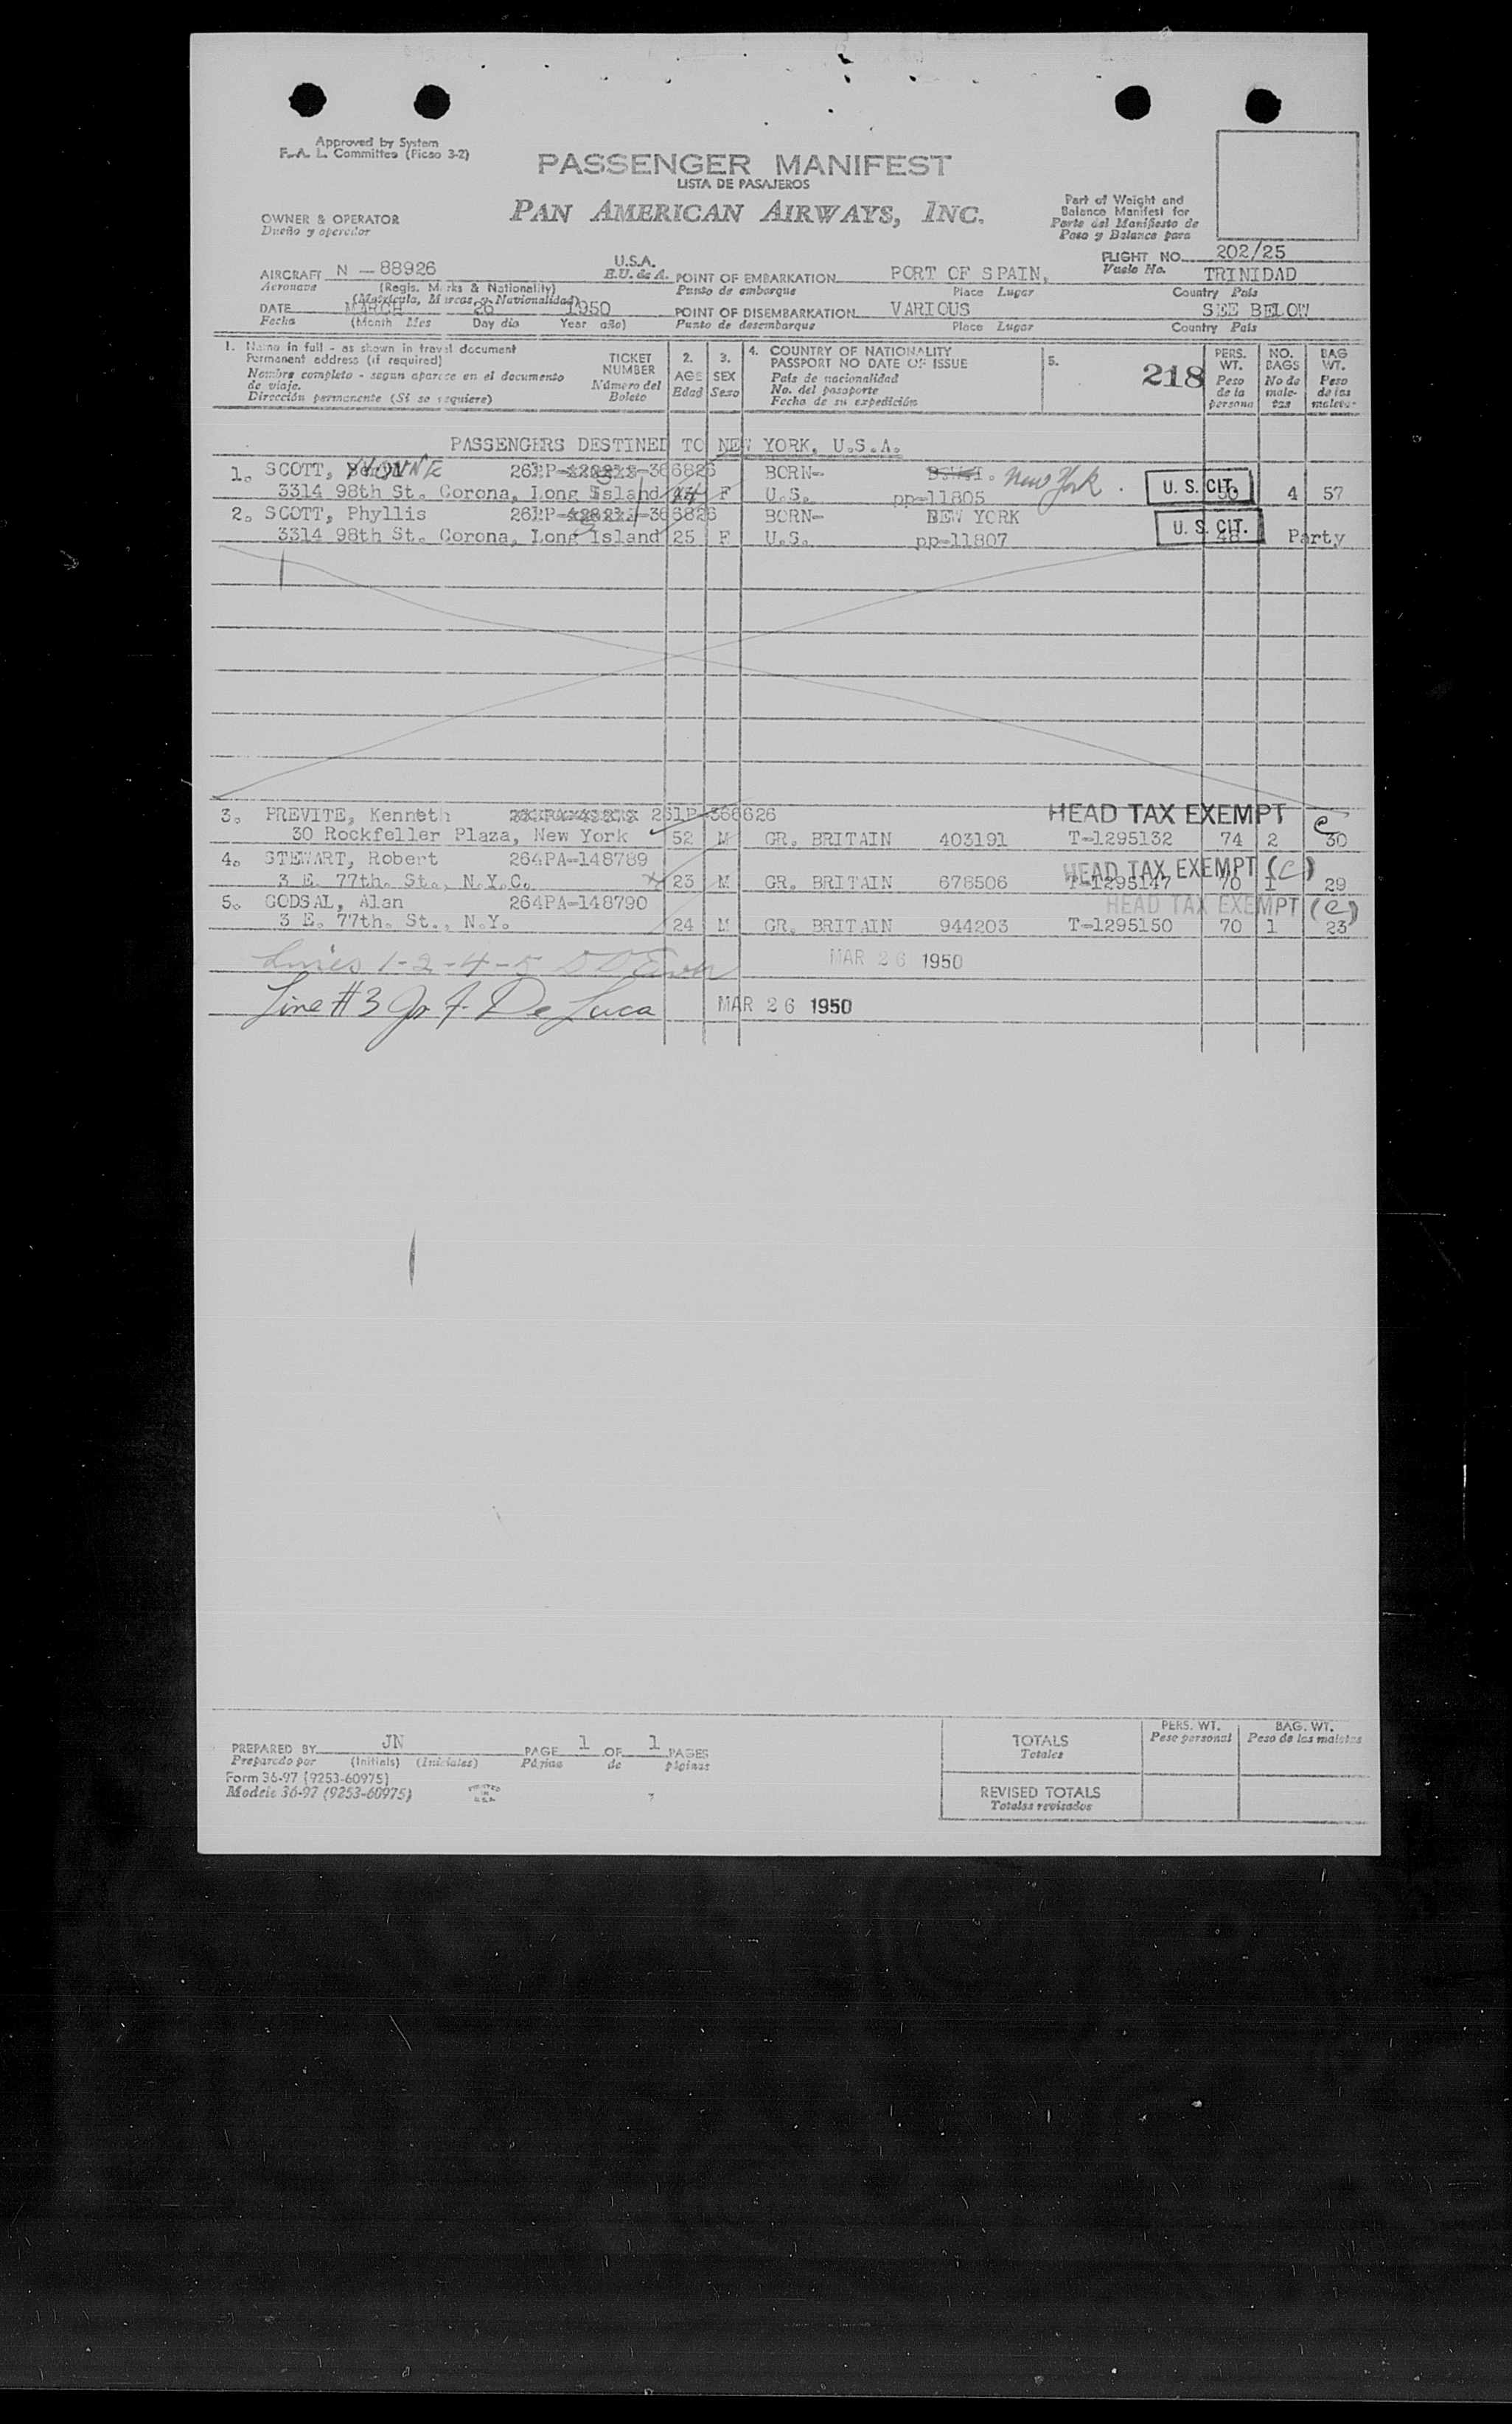 Approved by System
F.-A. L. Committee (Picao 3-2)
PASSENGER MANIFEST
LISTA DE PASAJEROS
PAN AMERICAN AIRWAYS, INC.
Part of Weight and
Balance Manifest for
Parte del Manifiesto de
Peso y Balance para
OWNER & OPERATOR
Dueño y operador
FLIGHT NO. 202/25
Vuelo No.
AIRCRAFT N - 88926 U.S.A. POINT OF EMBARKATION PORT OF SPAIN, TRINIDAD
Aeronave (Regis. Marks & Nationality) E.U. de A. Punto de embarque Place Lugar Country País
(Matrícula, Marcas y Nacionalidad)
DATE MARCH 26 1950 POINT OF DISEMBARKATION VARIOUS SEE BELOW
Fecha (Month Mes Day día Year año) Punto de desembarque Place Lugar Country País
1. Name in full - as shown in travel document
Permanent address (if required)
Nombre completo - segun aparece en el documento
de viaje.
Dirección permanente (Si se requiere)
TICKET
NUMBER
Número del
Boleto
2.
AGE
Edad
3.
SEX
Sexo
4. COUNTRY OF NATIONALITY
PASSPORT NO DATE OF ISSUE
País de nacionalidad
No. del pasaporte
Fecha de su expedición
5.
218
PERS.
WT.
Peso
de la
persona
NO.
BAGS
No de
male-
tas
BAG
WT.
Peso
de las
maletas
PASSENGERS DESTINED TO NEW YORK, U.S.A.
1. SCOTT, YVONNE 366826 BORN- New York. U. S. CIT.
3314 98th St. Corona, Long Island F U.S. pp-11805 50 4 57
2. SCOTT, Phyllis 366826 BORN- NEW YORK U. S. CIT.
3314 98th St. Corona, Long Island 25 F U.S. pp-11807 48 Party
3. PREVITE, Kenneth 261P-366626 HEAD TAX EXEMPT c
30 Rockfeller Plaza, New York 52 M GR. BRITAIN 403191 T-1295132 74 2 30
4. STEWART, Robert 264PA-148789 HEAD TAX EXEMPT (C)
3 E. 77th. St., N.Y.C. 23 M GR. BRITAIN 678506 T-1295147 70 1 29
5. GODSAL, Alan 264PA-148790 HEAD TAX EXEMPT (C)
3 E. 77th. St., N.Y. 24 M GR. BRITAIN 944203 T-1295150 70 1 23
Lines 1-2-4-5 MAR 26 1950
Line #3 De Luca MAR 26 1950
PREPARED BY JN PAGE 1 OF 1 PAGES
Preparado por (Initials) (Iniciales) Página de páginas
Form 36-97 (9253-60975)
Modelo 36-97 (9253-60975)
PRINTED
IN
U.S.A.
TOTALS
Totales
REVISED TOTALS
Totales revisados
PERS. WT.
Peso personal
BAG. WT.
Peso de las maletas